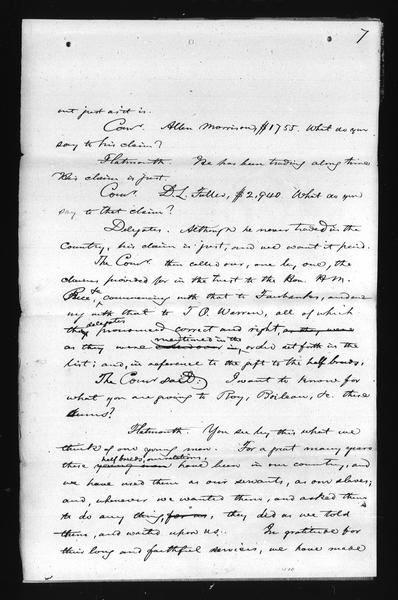 7
out just as it is.
Com'r. Allen Morrison, $1755. What do you
say to his claim?
Flatmouth. He has been trading a long time
His claim is just.
Com'r. D. L. Fuller, $2,940. What do you
say to that claim?
Delegates. Although he never traded in the
Country, his claim is just, and we want it paid.
The Com'r. then called over, one by one, the
claims provided for in the trust to the Hon. H. M.
Rice, &c, commencing with that to Fairbanks, and
with that to T. P. Warren, all of which
delegates
they pronounced correct and right
mentioned in the
as they were in, order set forth in the
list; and, in reference to the gift to the half breeds.
The Com'r said: I want to know for
what you are going to Roy, Boileau, &c. these
sums?
Flatmouth. You see by this what we
think of our young men. For a great many years
half breeds, our relations
these young men have been in our country, and
we have used them as our servants, as our slaves;
and, whenever we wanted them, and asked them
to do any thing, for us, they did as we told
them, and waited upon us. In gratitude for
their long and faithful services, we have made